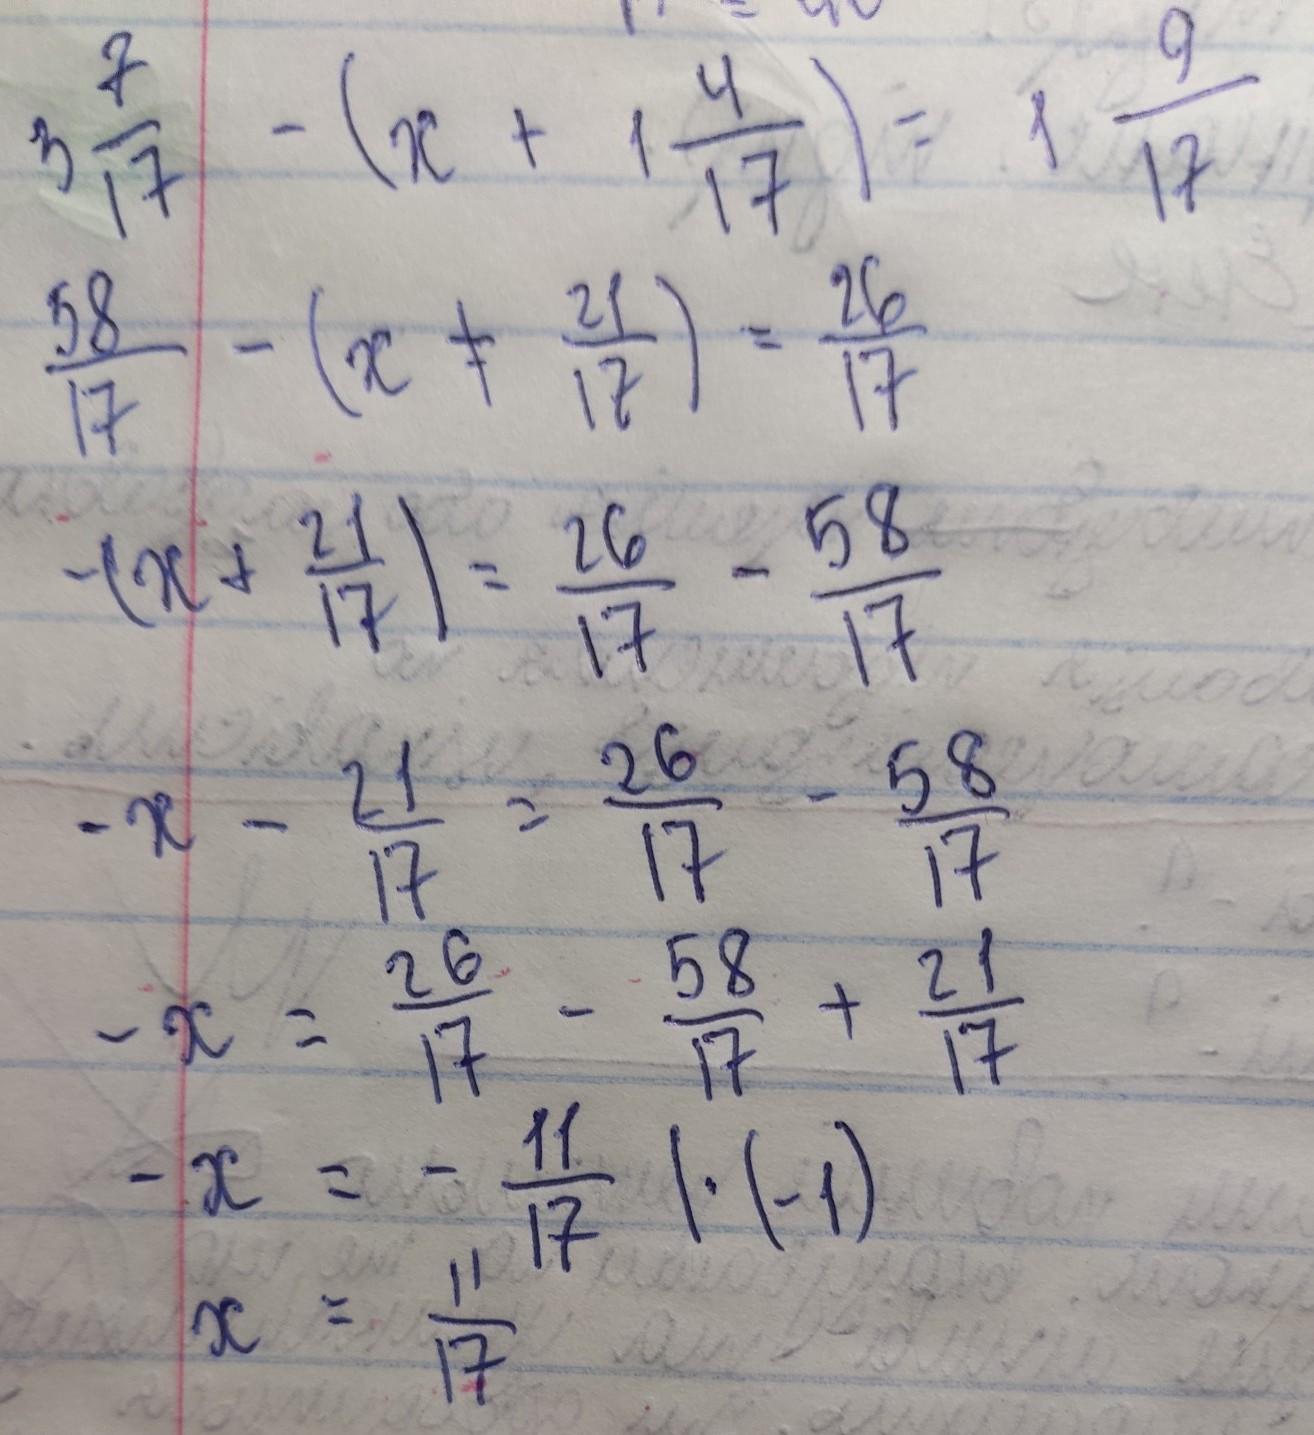 3 7/17 - (x + 1 4/17) = 1 9/17
58/17 - (x + 21/17) = 26/17
-(x + 21/17) = 26/17 - 58/17
-x - 21/17 = 26/17 - 58/17
-x = 26/17 - 58/17 + 21/17
-x = - 11/17 | · (-1)
x = 11/17